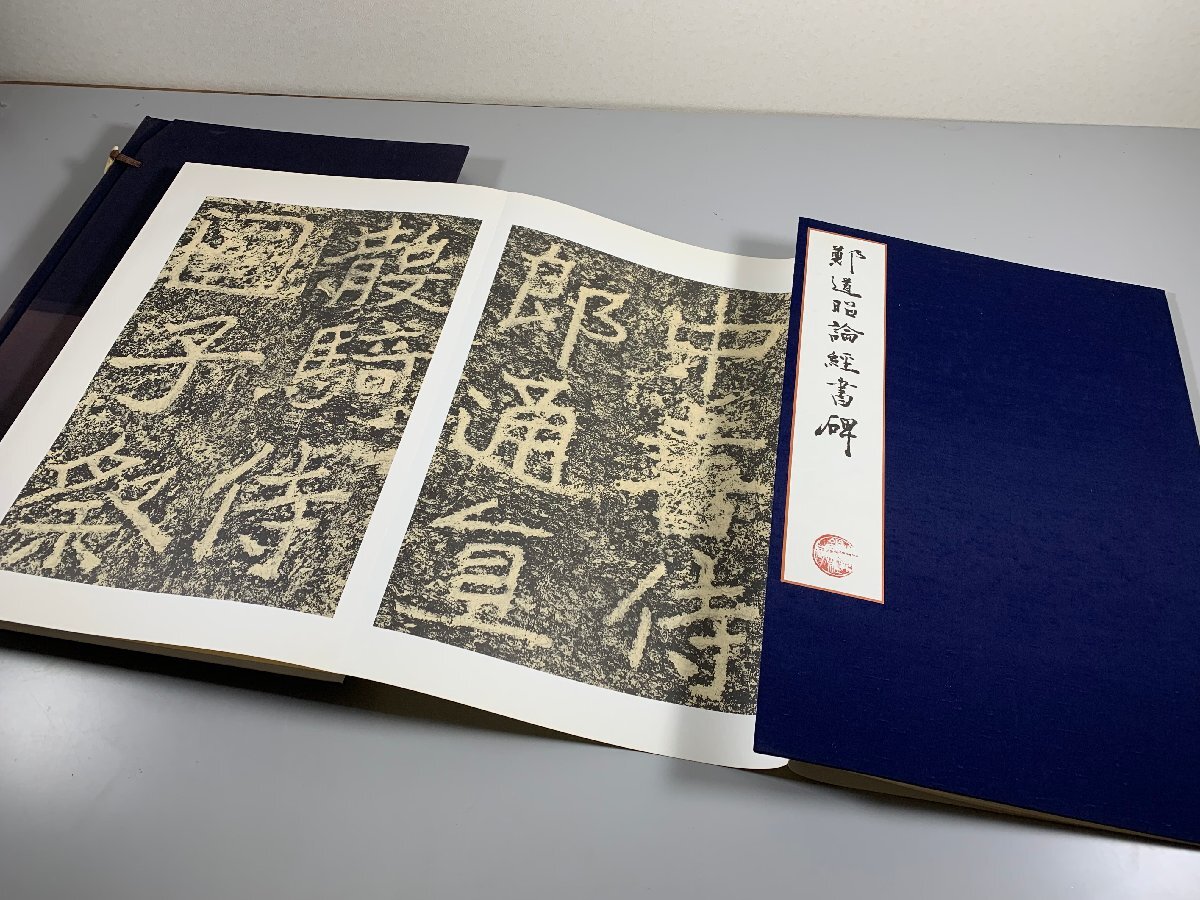 鄭道昭論經書碑
中書侍
郎通直
散騎侍
國子祭